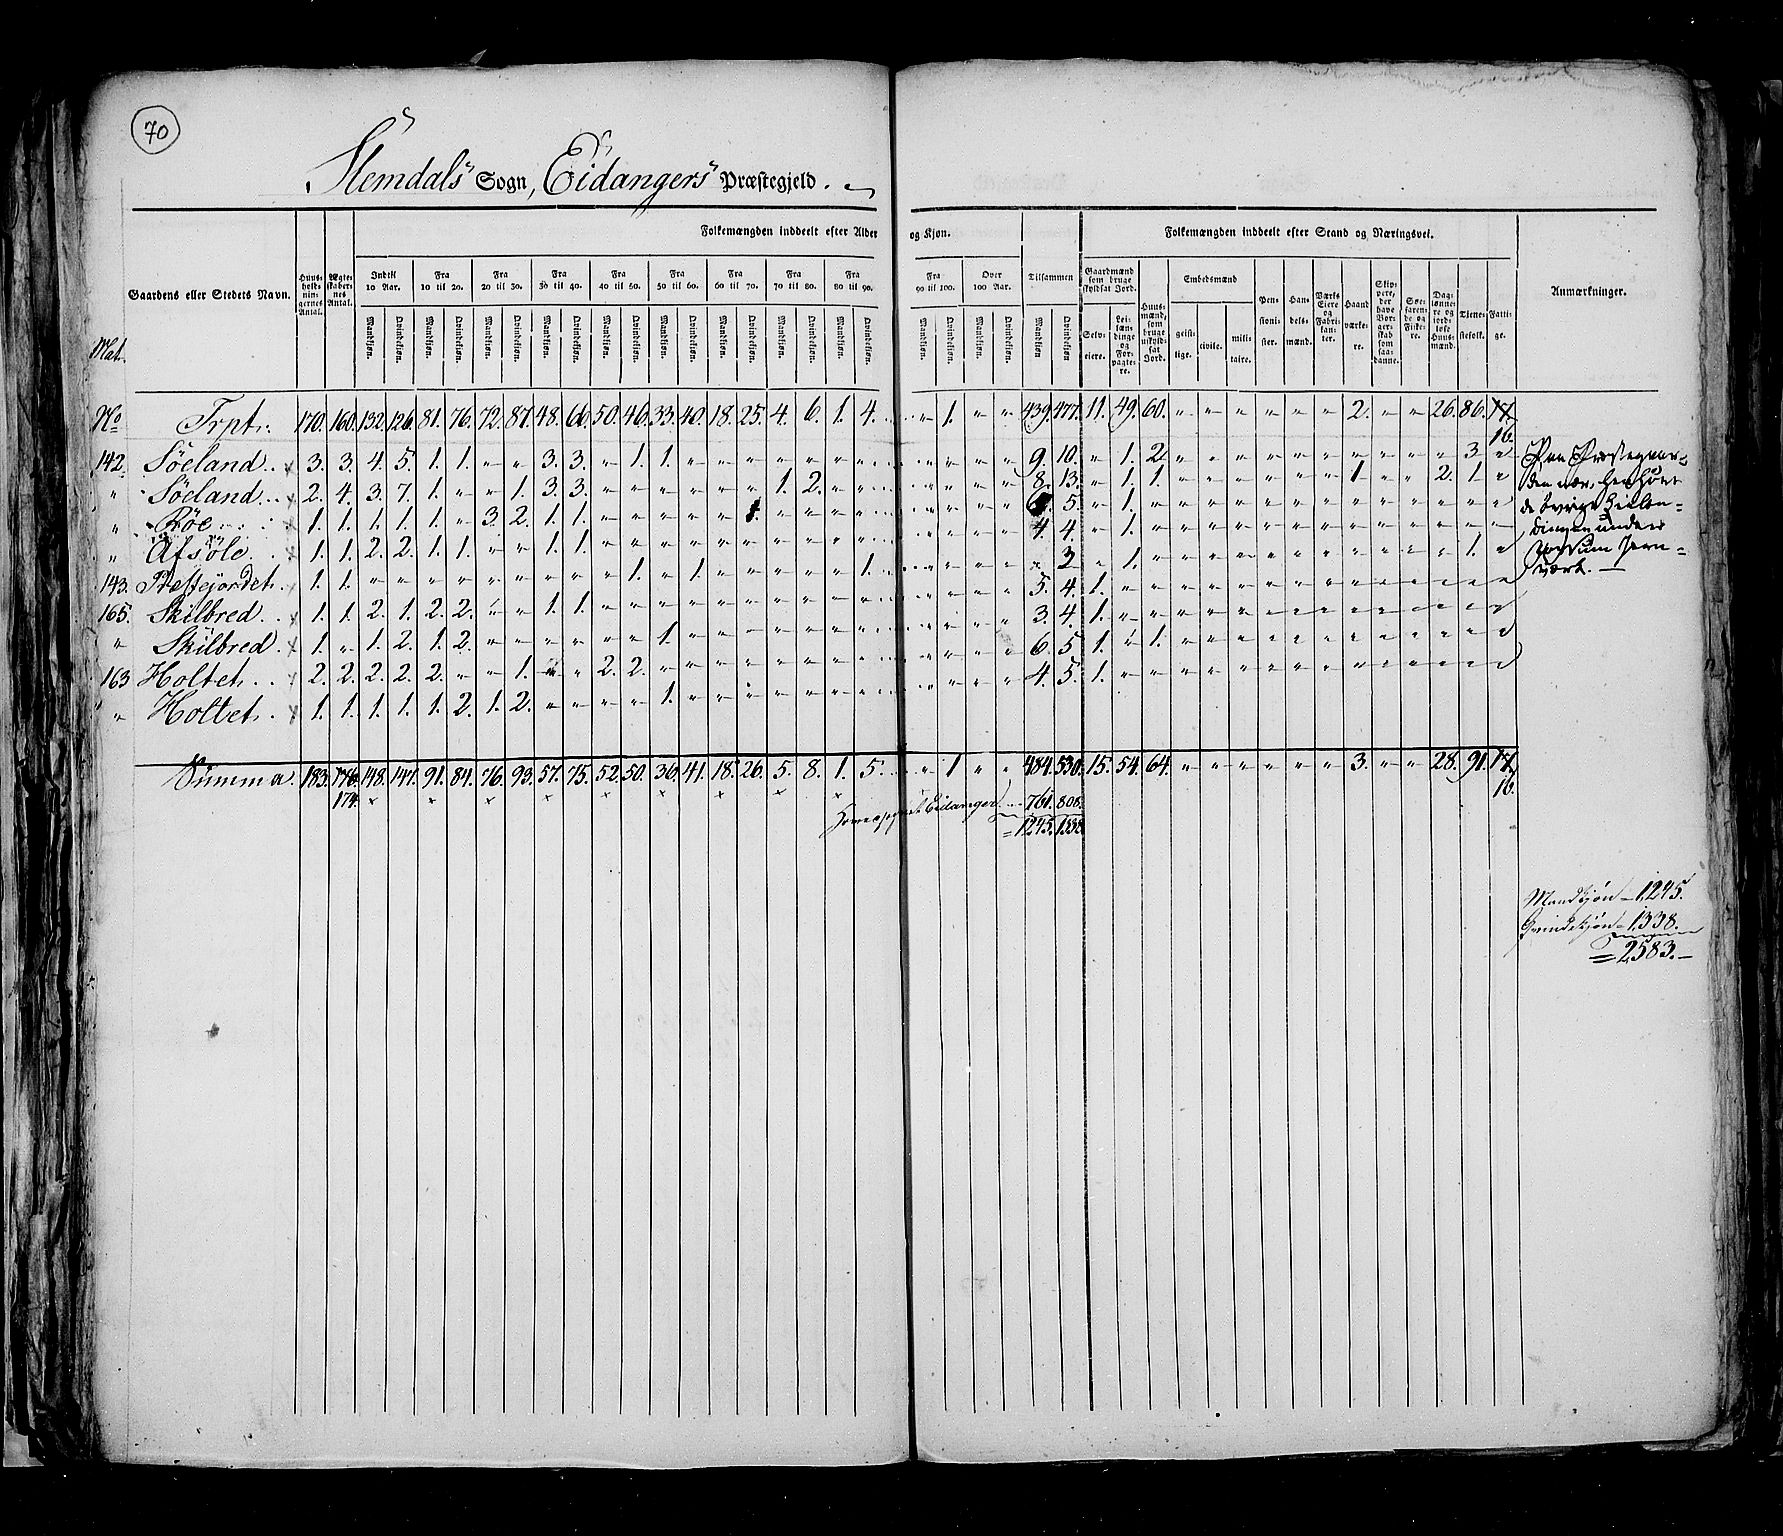 70
Slemdals Sogn, Eidangers Præstegjeld.
Gaardens eller Stedets Navn.
Huus-holdningernes Antal.
Ægteskabernes Antal.
Folkemængden inddeelt efter Alder og Kjøn.
Indtil 10 Aar. Fra 10 til 20. Fra 20 til 30. Fra 30 til 40. Fra 40 til 50. Fra 50 til 60. Fra 60 til 70. Fra 70 til 80. Fra 80 til 90. Fra 90 til 100. Over 100 Aar. Tilsammen
Mandkjøn. Qvindekjøn.
Folkemængden inddeelt efter Stand og Næringsvei.
Gaardmænd som bruge skyldsat Jord.
Selveiere.
Leilændinge og Forpagtere.
Huusmænd, som bruge uskyldsat Jord.
Embedsmænd
geistlige. civile. militaire.
Pensionister.
Handelsmænd.
Værks Eiere og Fabrikanter.
Haandværkere.
Skippere, der have Borgerskab som saadanne.
Søefarende og Fiskere.
DagløNnere og jordløse Huusmænd.
Tjenestefolk.
Fattige.
Anmærkninger.
Mat.
No Trpt. 170. 160. 132. 126. 81. 76. 72. 87. 48. 66. 50. 46. 33. 40. 18. 25. 4. 6. 1. 4. " 1. " " 439. 477. 11. 49. 60. " " " " " " 2. " " 26. 86. 17. 16.
142. Söeland. 3. 3. 4. 5. 1. 1. " " 3. 3. " 1. 1. " " " " " " " " " " " 9. 10. " 1. 2. " " " " " " " " " " 3. "
" Söeland. 2. 4. 3. 7. 1. " " 1. 3. 3. " " " " " " 1. 2. " " " " " " 8. 13. " 1. 1. " " " " " " 1. " " 2. 1. "
" Röe 1. 1. 1. 1. 1. " 3. 2. 1. 1. " " " " " 1. " " " " " " " " 6. 5. " 1. " " " " " " " " " " " " "
" Afsöle. 1. 1. 2. 2. 1. 1. " " 1. 1. " " " " " " " " " " " " " " 4. 4. " 1. " " " " " " " " " " " " "
143. Præstejordet. 1. 1. " " " " " " " " " 1. " 1. " " " " " 1. " " " " " 3 " 1. " " " " " " " " " " " 1. "
165. Skilbred. 1. 1. 2. 1. 2. 2. " " 1. 1. " " " " " " " " " " " " " " 5. 4. 1. " " " " " " " " " " " " " "
" Skilbred. 1. " 1. 2. 1. 2. " " " " " " 1. " " " " " " " " " " " 3. 4. 1. " " " " " " " " " " " " " "
163 Holtet. 2. 2. 2. 2. 2. " " 1. " " 2. 2. " " " " " " " " " " " " 6. 5. 1. " 1. " " " " " " " " " " " "
" Holtet. 1. 1. 1. 1. 1. 2. 1. 2. " " " " 1. " " " " " " " " " " " 4. 5. 1. " " " " " " " " " " " " " "
Paa Præstegaarden nær, henhöre
de övrige Leilændinger under
Fossum Jernværk.
Summa. 183. 176. 148. 147. 91. 84. 76. 93. 57. 75. 52. 50. 36. 41. 18. 26. 5. 8. 1. 5. " 1 " " 484. 530. 15. 54. 64. " " " " " " 3. " " 28. 91. 17. 16.
174.
Hovedsognet Eidanger 761. 808.
= 1245. 1338.
Mandkjön – 1245.
Qvindekjön – 1338.
= 2583.